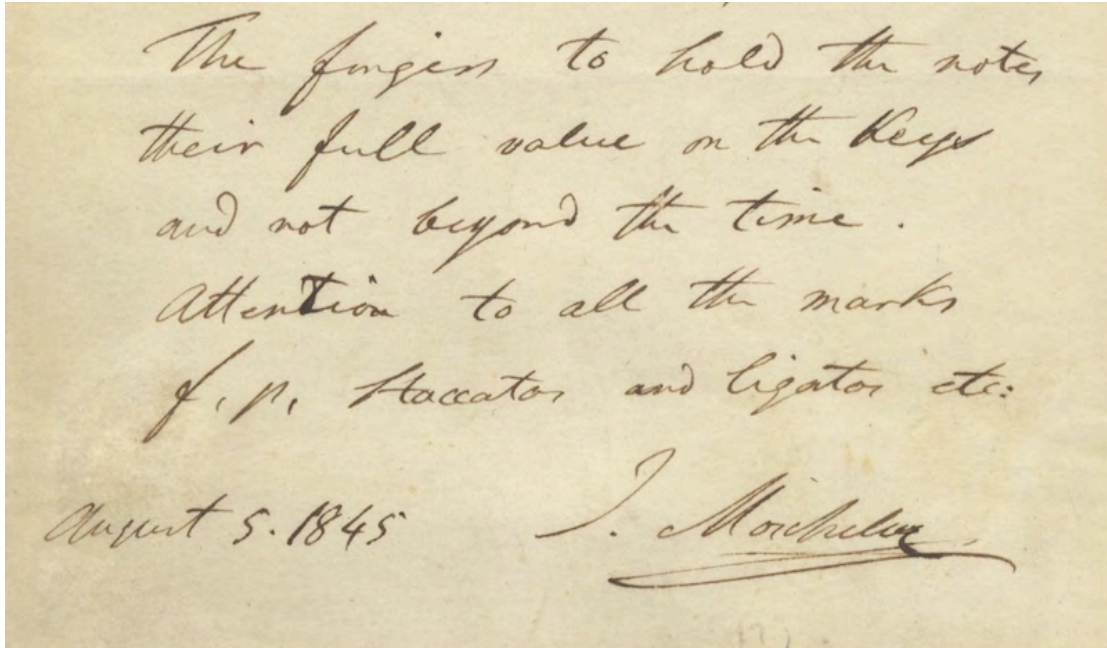 The fingers to hold the notes
their full value on the Keys
and not beyond the time.
Attention to all the marks
f, p, staccatos and ligatos etc:
August 5. 1845 I. Moscheles